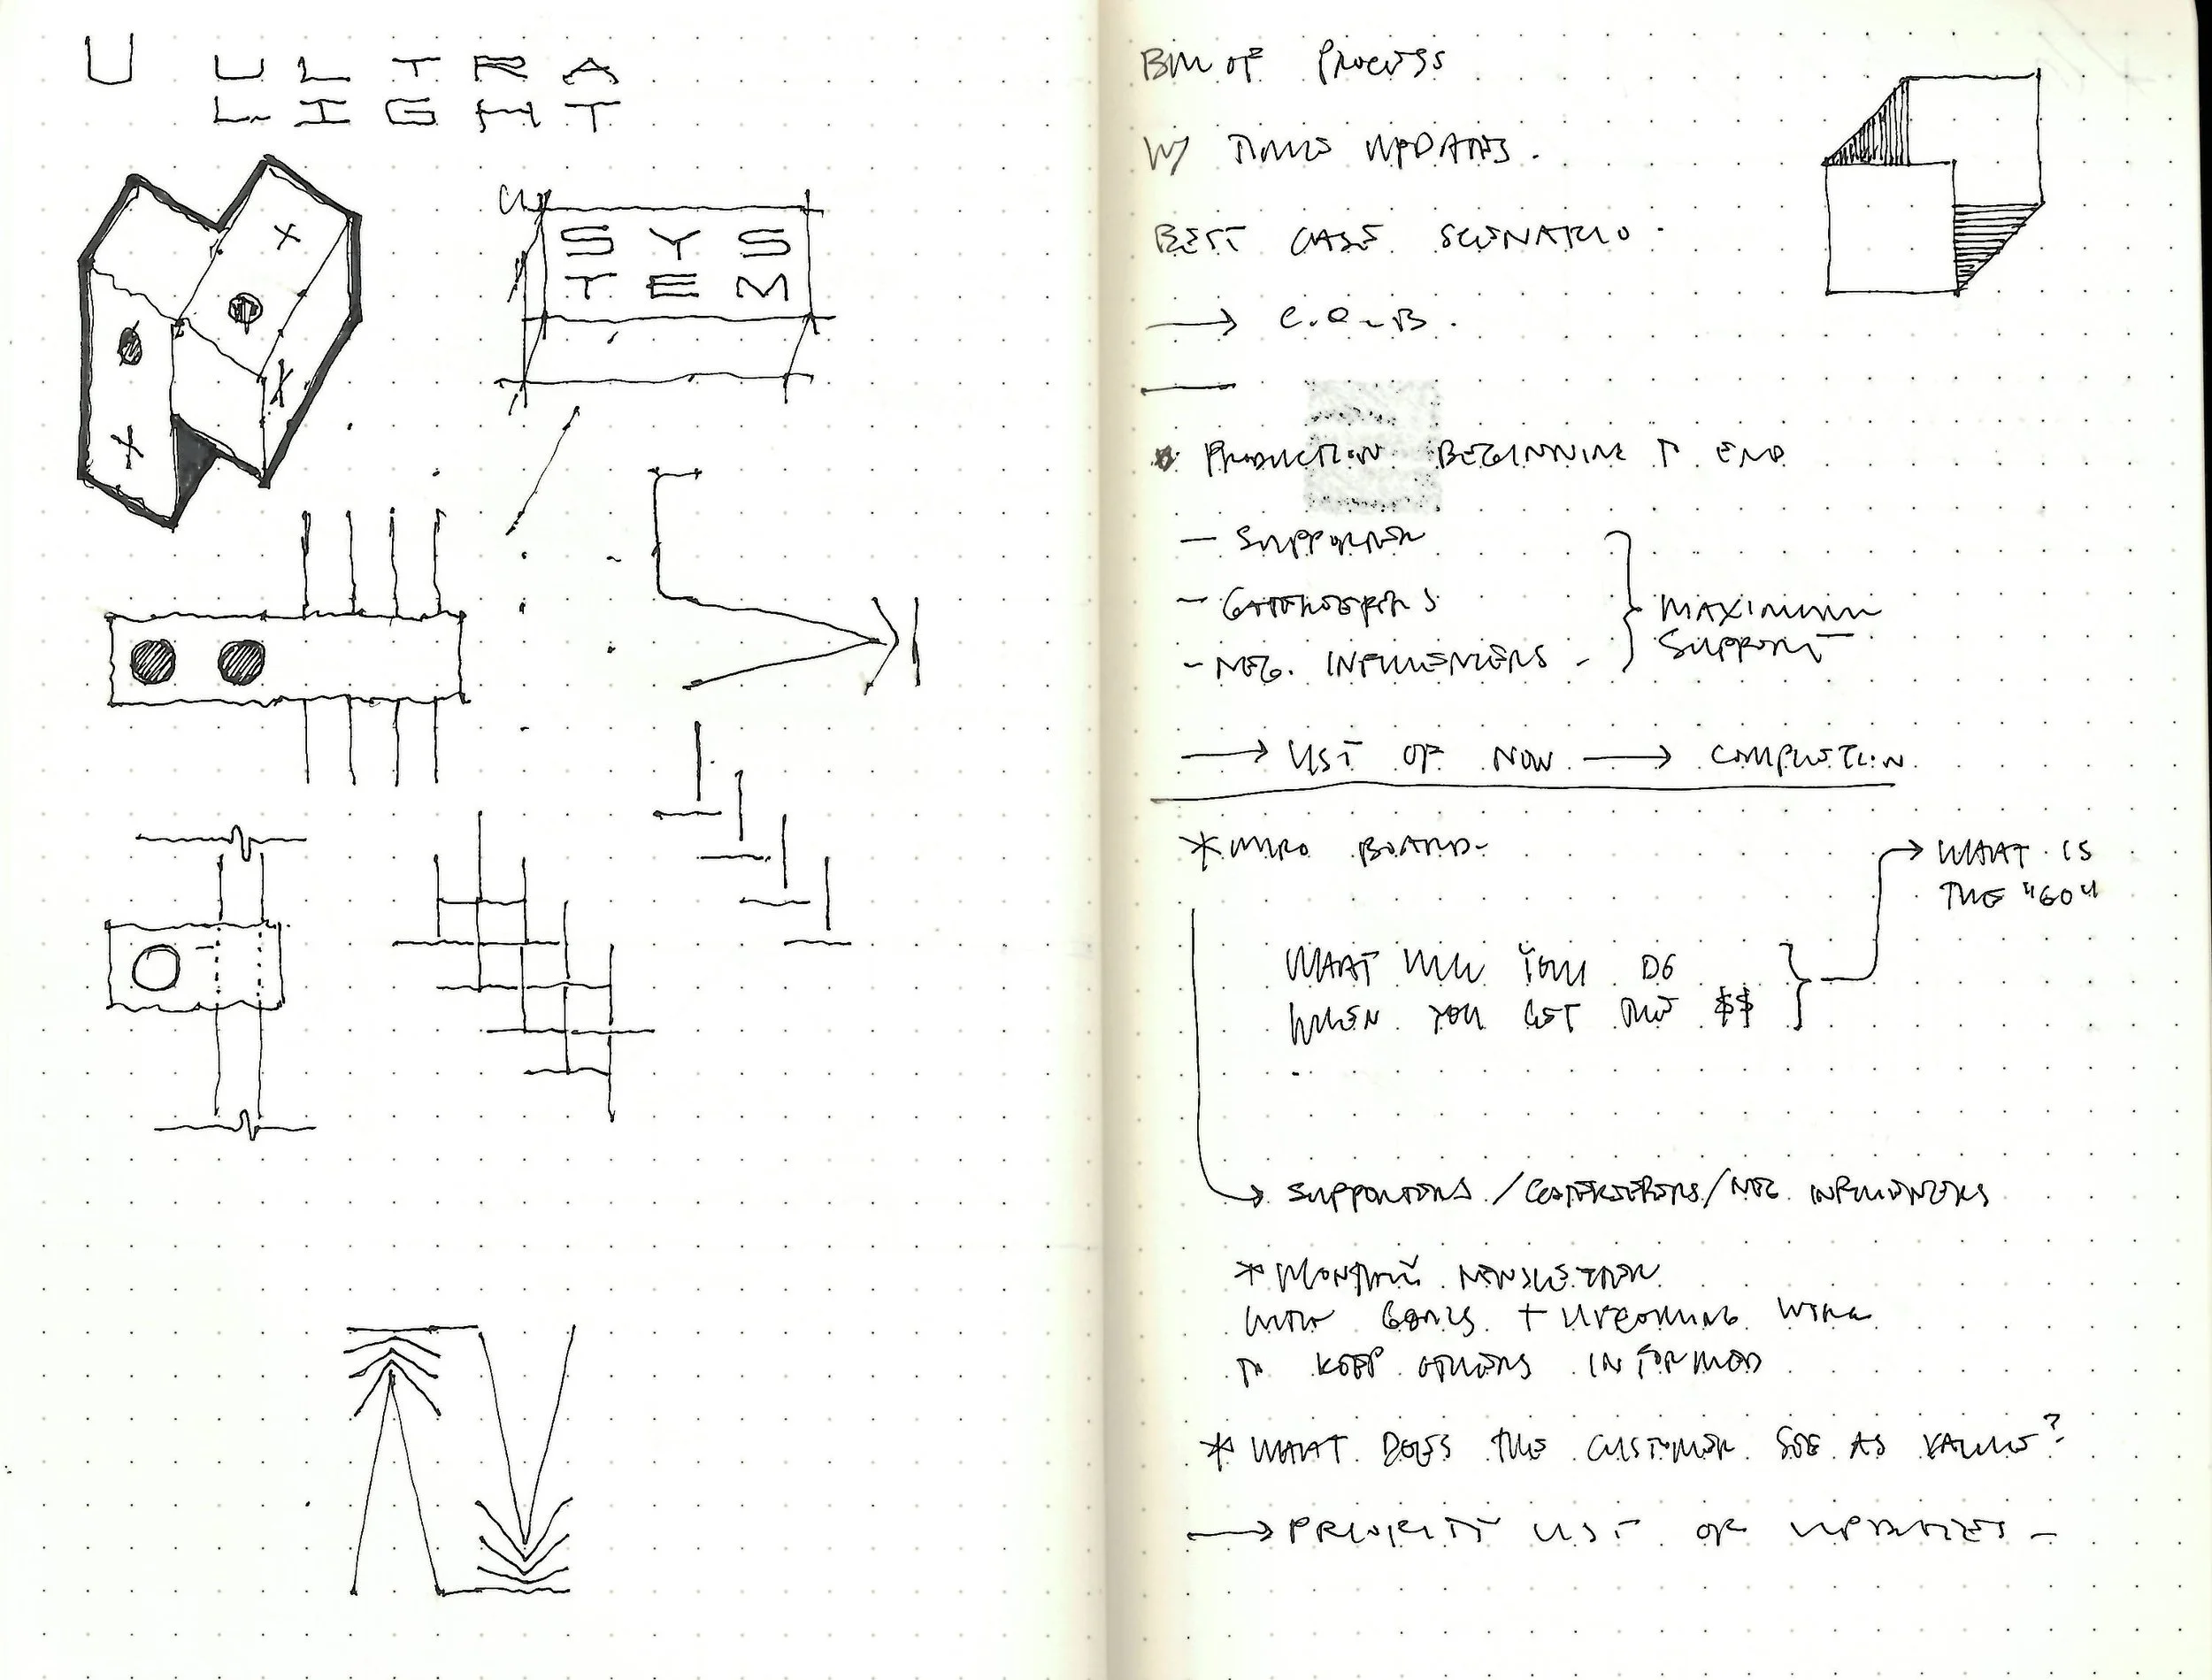 U ULTRA
LIGHT
SYS
TEM
OF PROCESS
W/ UPDATES.
BEST CASE SCENARIO.
→
PRODUCTION BEGINNING TO END
— SUPPORTER
— GATEKEEPERS
- NEG. INFLUENCERS -
MAXIMUM
SUPPORT
→ LIST OF NOW → COMPLETION
* MIRO BOARD-
WHAT IS
THE "GO"
WHAT WILL YOU DO
WHEN YOU GET THE $$
→ SUPPORTERS / GATEKEEPERS / NEG. INFLUENCERS
* MONTHLY NEWSLETTER
WITH GOALS + UPCOMING WORK
TO KEEP OTHERS INFORMED
* WHAT DOES THE CUSTOMER SEE AS VALUE?
→ PRIORITY LIST OF UPDATES -